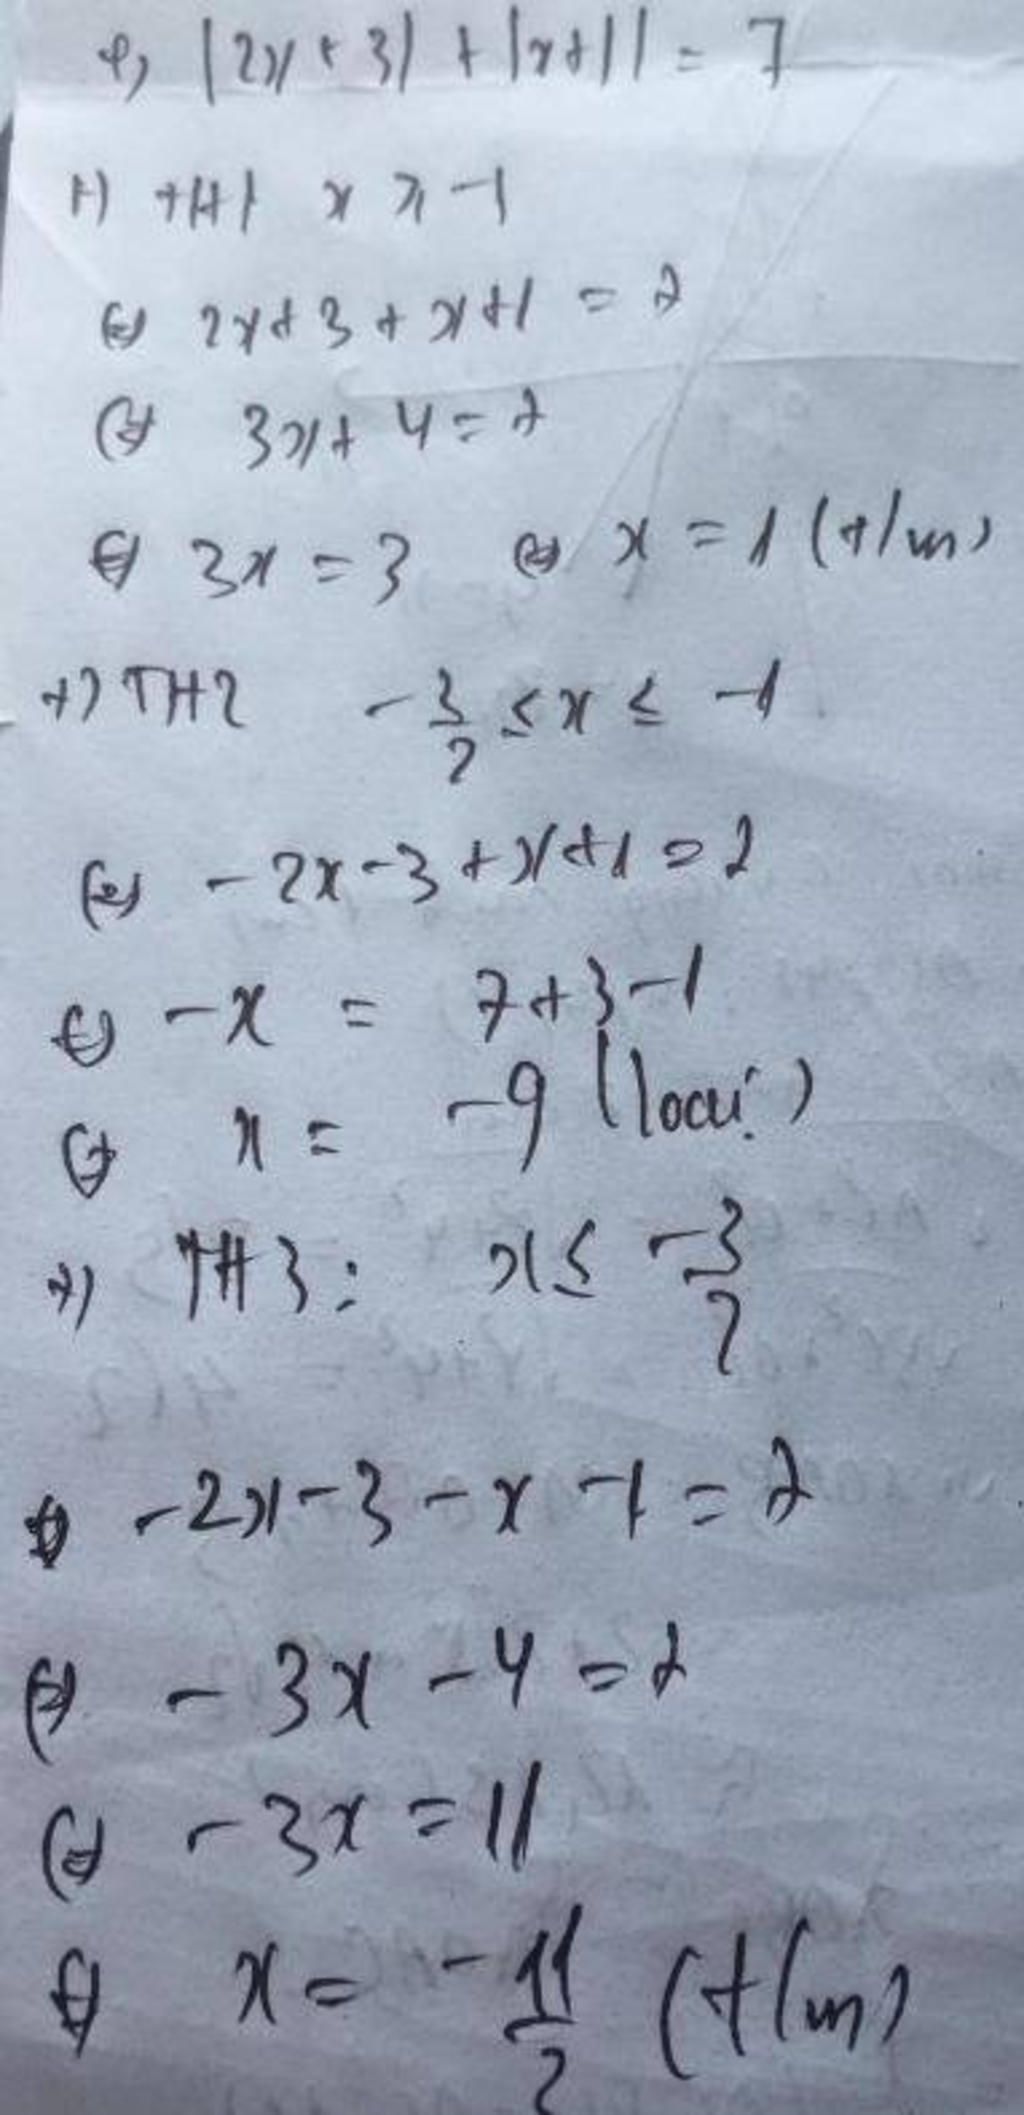 e) |2x+3| + |x+1| = 7
+) TH1 x ≥ -1
⇔ 2x+3+x+1 = 7
⇔ 3x+4=7
⇔ 3x=3 ⇔ x=1 (t/m)
+) TH2 -3/2 ≤ x ≤ -1
⇔ -2x-3+x+1=7
⇔ -x = 7+3-1
⇔ x = -9 (loại)
+) TH3: x ≤ -3/2
⇔ -2x-3-x-1=7
⇔ -3x-4=7
⇔ -3x=11
⇔ x= -11/2 (t/m)